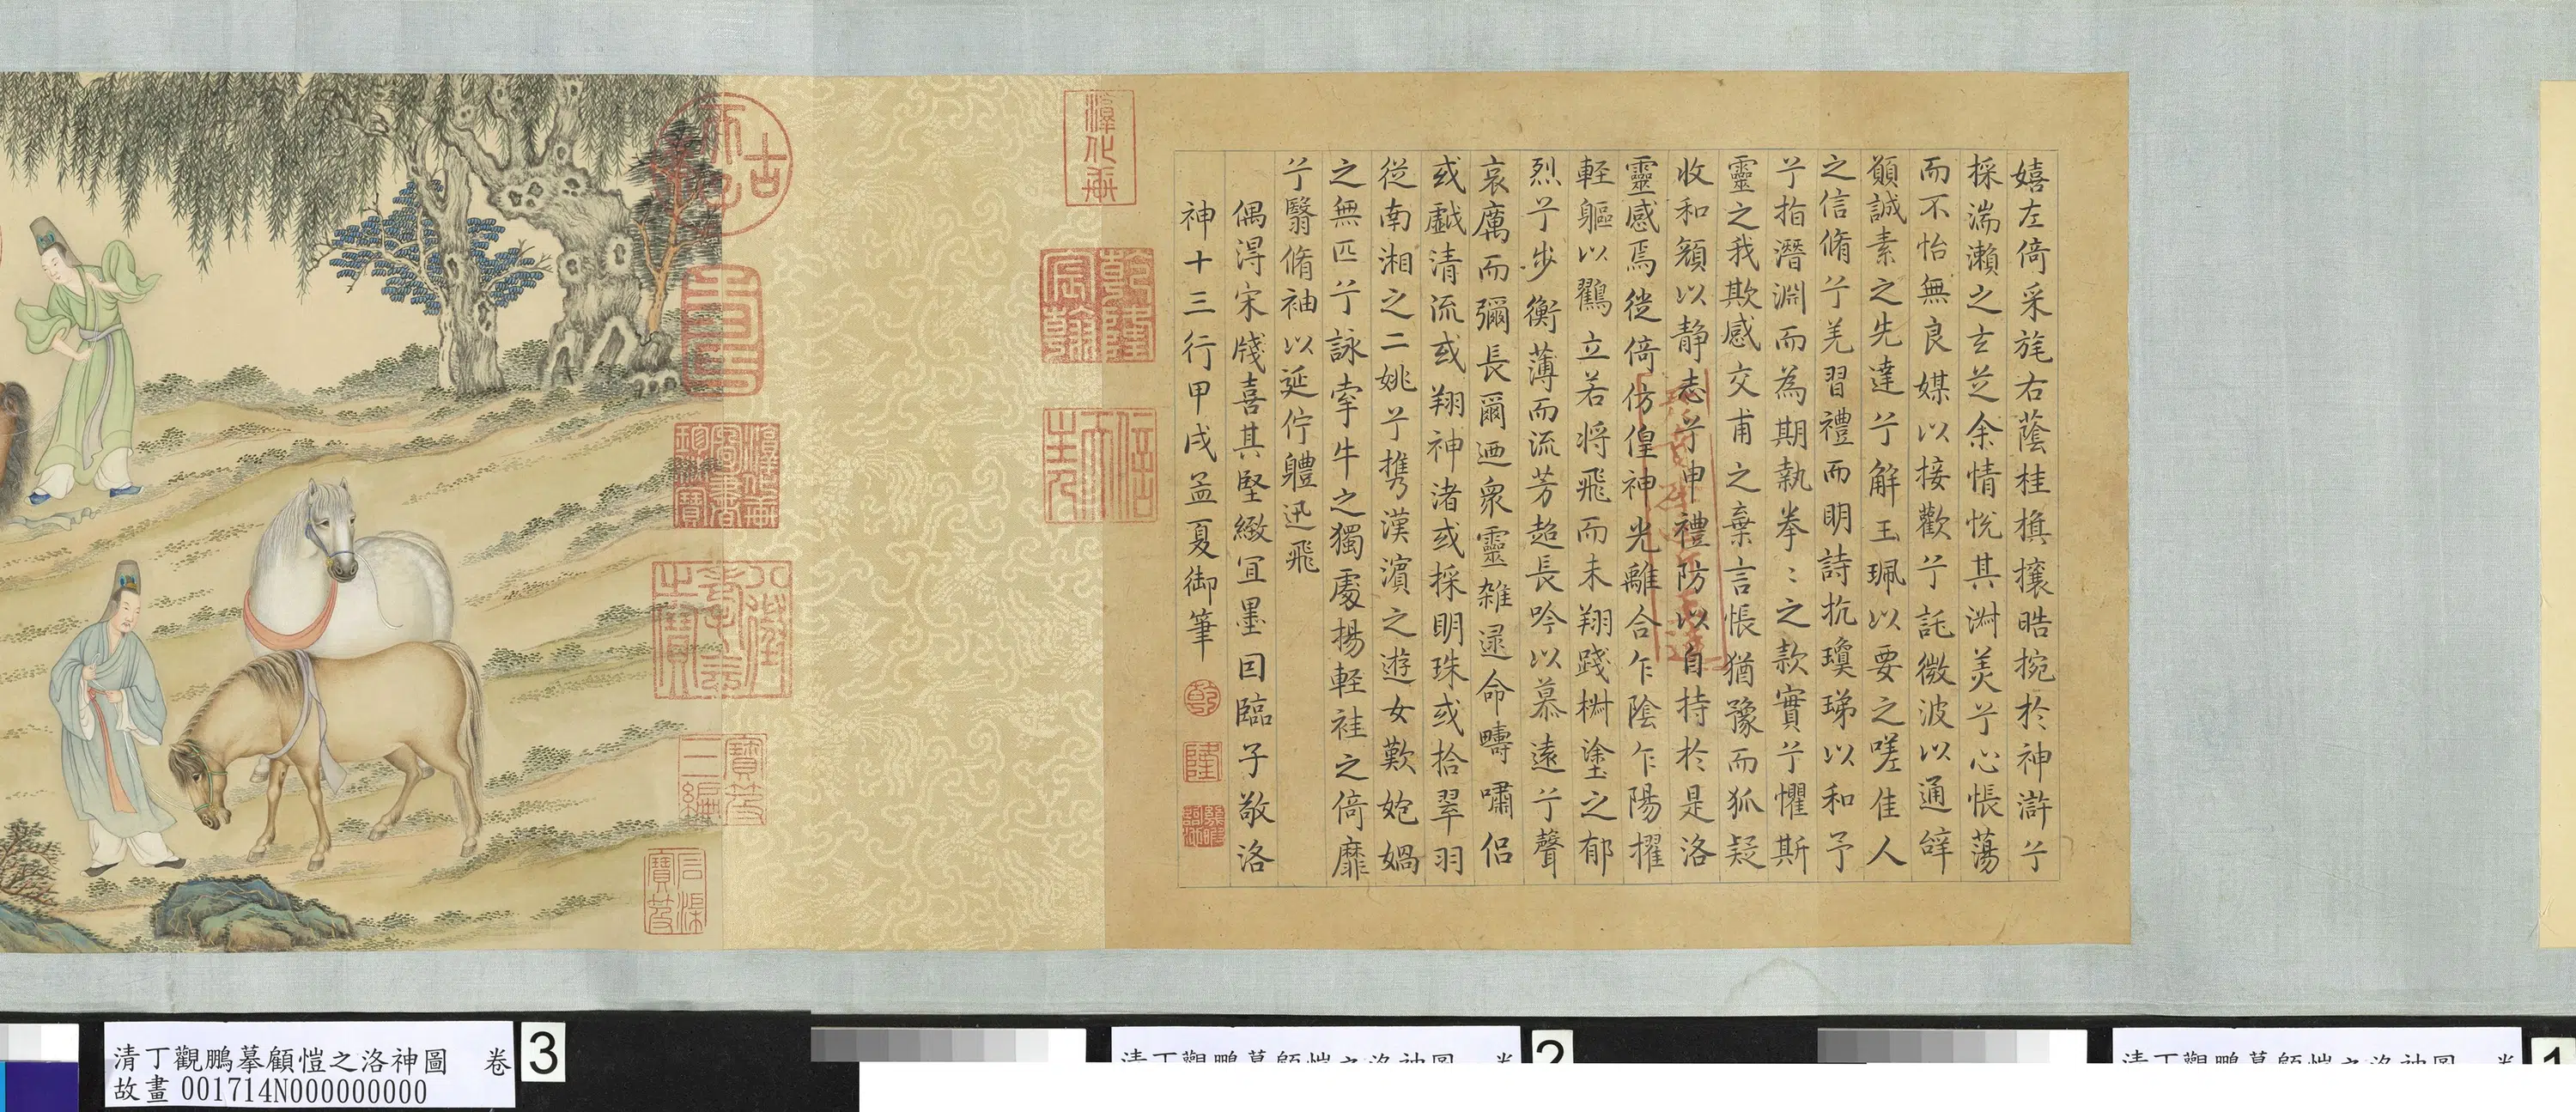 嬉左倚采旄右蔭桂旗攘晧捥於神滸兮
採湍瀨之玄芝余情悅其淑美兮心悵蕩
而不怡無良媒以接歡兮託微波以通辝
願誠素之先達兮解玉珮以要之嗟佳人
之信脩兮羌習禮而明詩抗瓊珶以和予
兮指潛淵而為期執拳〻之款實兮懼斯
靈之我欺感交甫之棄言悵猶豫而狐疑
收和顏以靜志兮申禮防以自持於是洛
靈感焉徙倚仿偟神光離合乍陰乍陽擢
輕軀以鸖立若將飛而未翔踐椒塗之郁
烈兮步衡薄而流芳超長吟以慕遠兮聲
哀厲而彌長爾迺眾靈雜遝命疇嘯侶
或戲清流或翔神渚或採明珠或拾翠羽
從南湘之二姚兮攜漢濱之遊女歎匏媧
之無匹兮詠牽牛之獨處揚輕袿之倚靡
兮翳脩袖以延佇體迅飛
偶得宋牋喜其堅緻宜墨因臨子敬洛
神十三行甲戌孟夏御筆
乾
隆
淳化軒
乾隆宸翰
信天主人
壽
淳化軒圖書珍秘寶
八徵耄念之寶
寶笈三編
石渠寶笈
清丁觀鵬摹顧愷之洛神圖 卷 3
故畫 001714N000000000
清丁觀鵬摹顧愷之洛神圖 卷 2
清丁觀鵬摹顧愷之洛神圖 卷 1